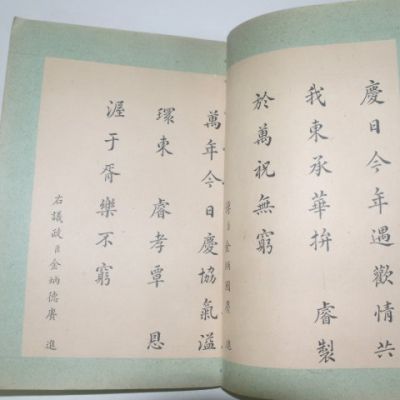 慶日今年遇歡情共
我東承華抃 睿製
於萬祝無窮
臣金炳國賡 進
萬年今日慶協氣溢
環東 睿孝覃 恩
渥于胥樂不窮
右議政臣金炳德賡 進